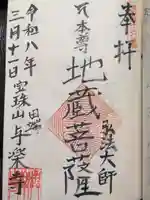 奉拝
弘法大師
本尊
地蔵菩薩
田端
宝珠山与楽寺
令和八年
三月十一日